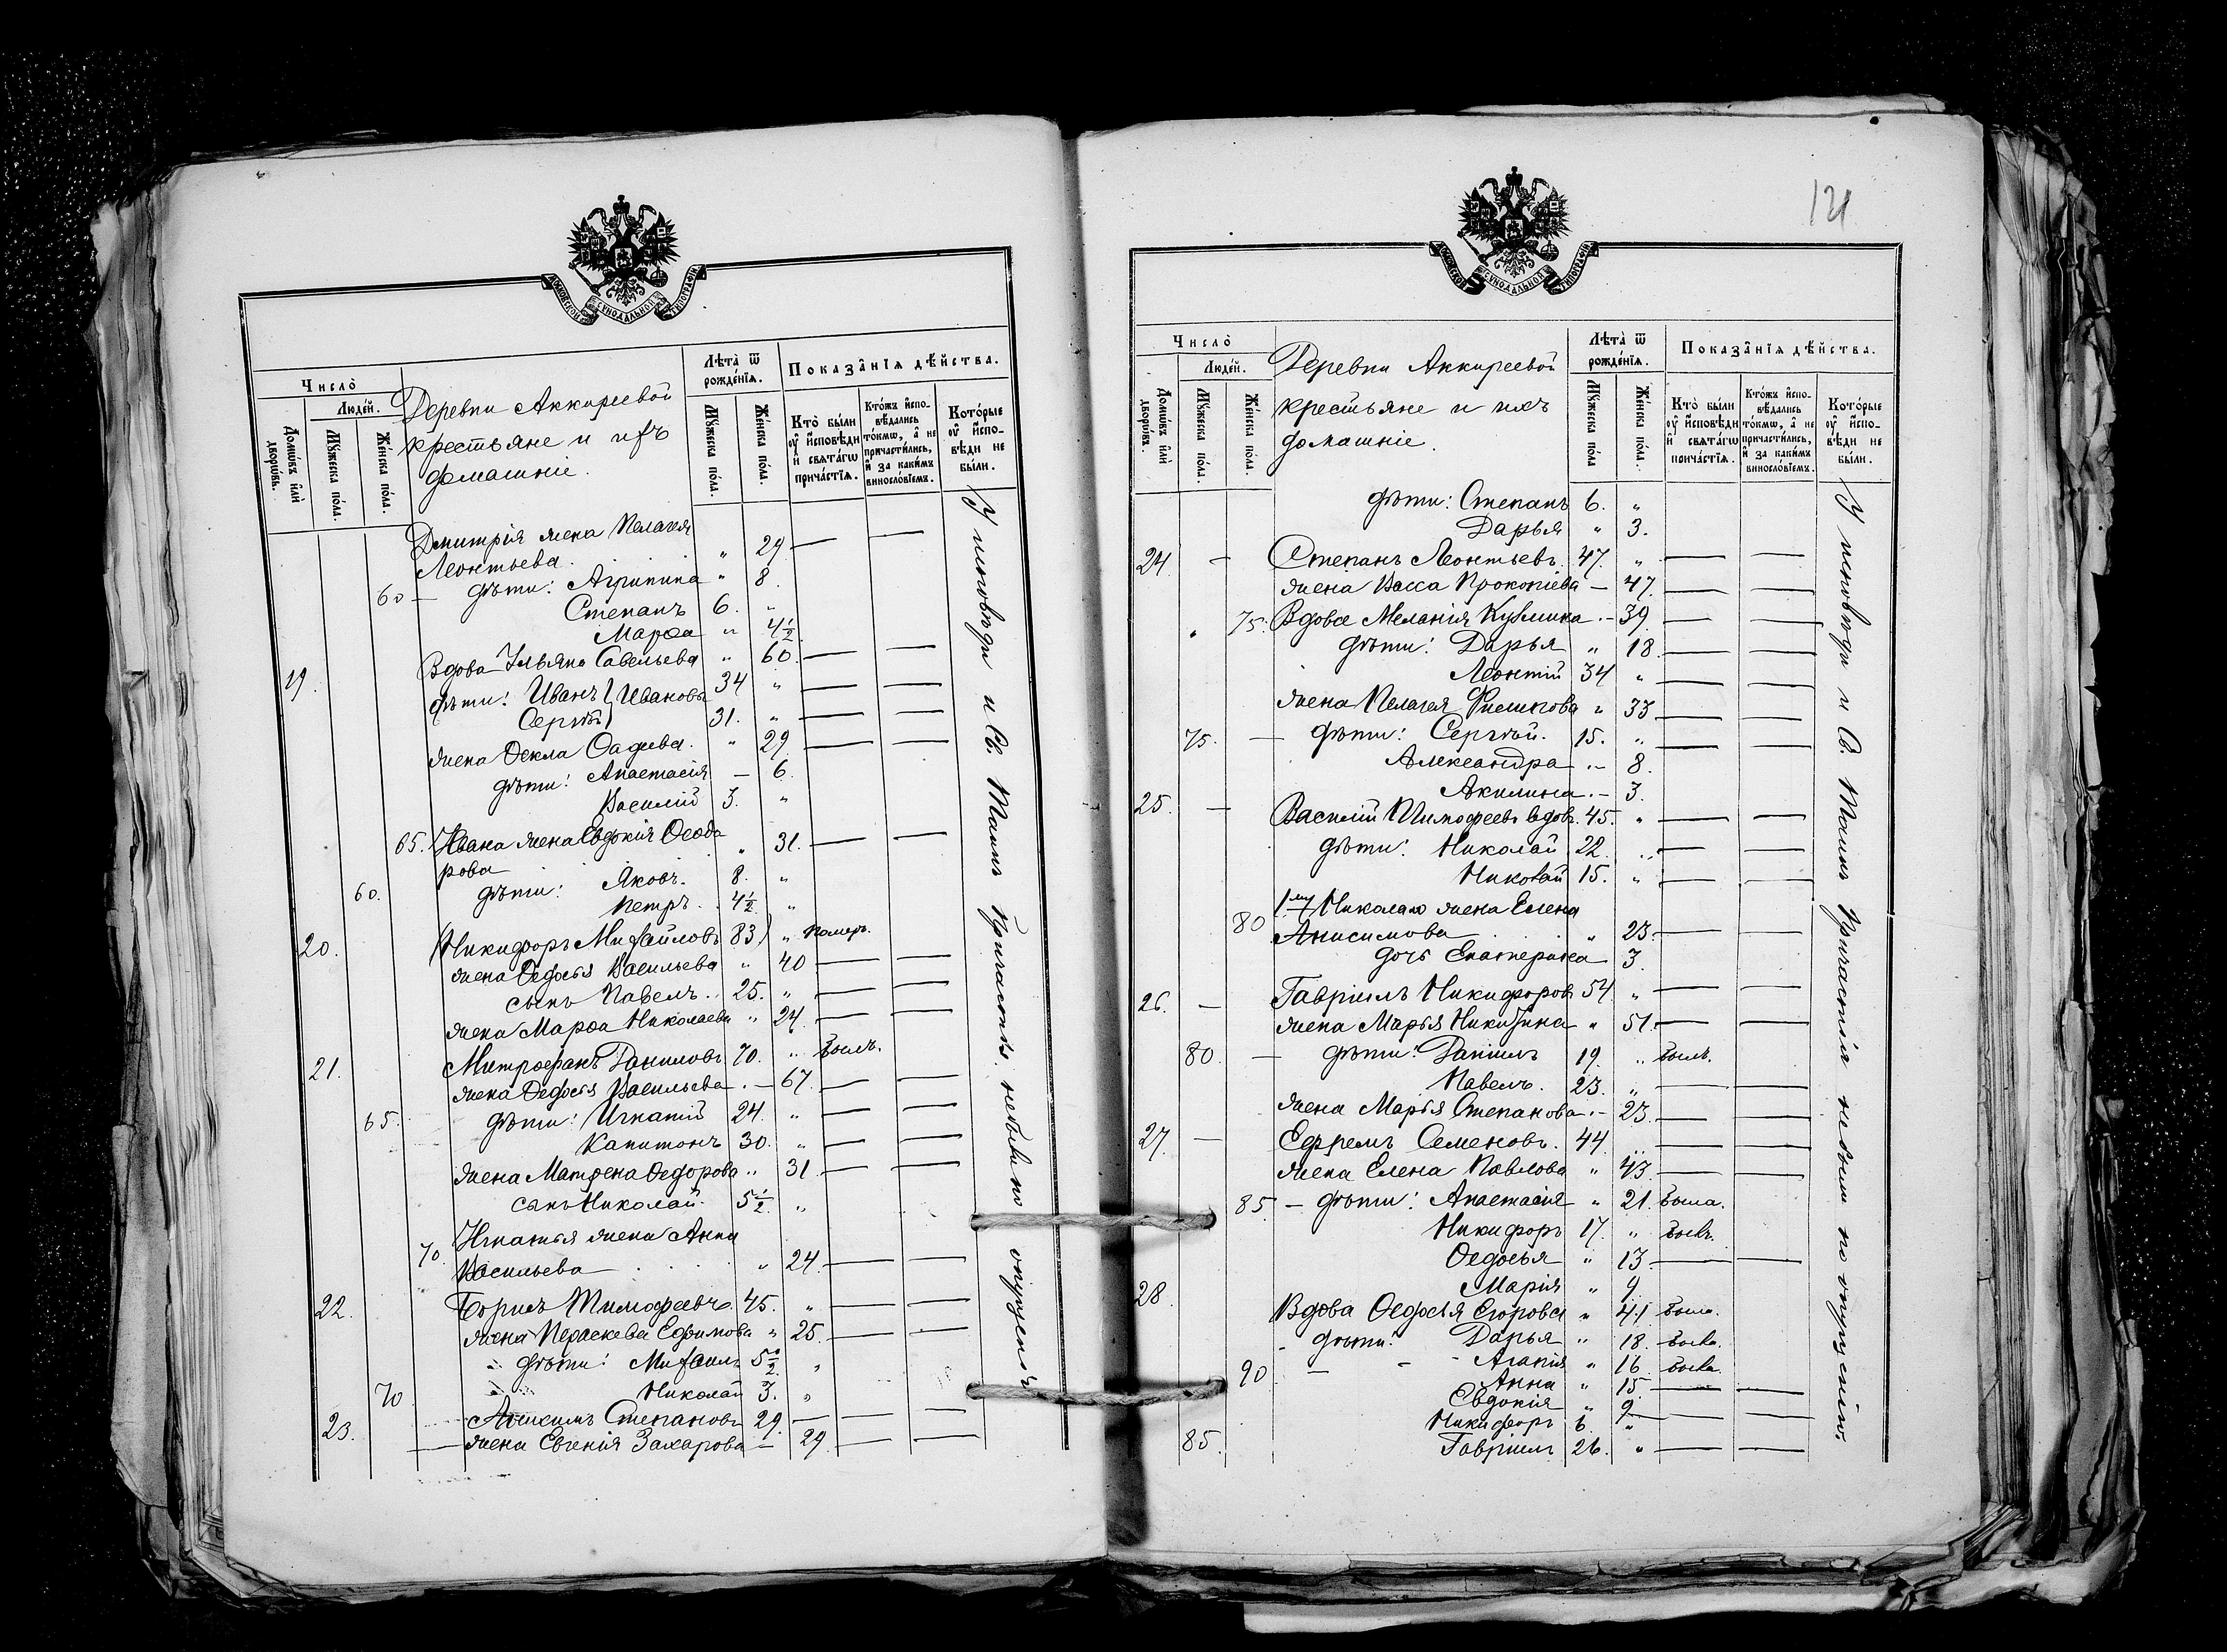 МОСКОВСКОЙ СѴНОДАЛЬНОЙ ТИПОГРАФІИ
Число̀
Людей.
Домѡвъ и҆лѝ дворѡвъ.
Мꙋжеска пола.
Женска пола.
Деревни Аккиреевой
крестьяне и ихъ
домашніе.
Лѣта̀ ѿ рожденїѧ.
Мꙋжеска пола.
Женска пола.
Показанїѧ дѣйства.
Кто̀ были ᲂу҆ и҆сповѣди и҆ свѧтагѡ причастїѧ.
Ктожъ и҆сповѣдались токмѡ, а҆ не причастились, и҆ за какимъ винословїемъ.
Которые ᲂу҆ и҆сповѣди не были.
Дмитрія жена Пелагея
Леонтьева. " 29 — —
60 — дѣти: Агрипина " 8.
Степанъ 6. "
Марѳа " 4½
19. Вдова Ульяна Савельева " 60. — —
дѣти: Иванъ } Ивановы 34 " — —
Сергѣй } 31. " — —
жена Ѳекла Ѳадѣева. " 29 — —
дѣти: Анастасія — 6.
Василій 3. "
65. Ивана жена Евдокія Ѳеодо
рова " 31. — —
60. дѣти: Яковъ. 8. "
Петръ. 4½ "
20. (Никифоръ Михайловъ 83) " Померъ.
жена Ѳедосья Васильева " 40 — —
сынъ Павелъ. 25. " — —
жена Марѳа Николаева " 24. — —
21. Митрофанъ Даниловъ 70. " Былъ.
жена Ѳедосья Васильева. — 67. — —
65. дѣти: Игнатій 24. " — —
Капитонъ 30. " — —
жена Матрена Ѳедорова " 31 — —
сынъ Николай 5½ "
Игнатья жена Анна
70. Васильева " 24. — —
22. Борисъ Тимофеевъ. 45. " — —
жена Параскева Ефимова " 25. — —
дѣти: Михаилъ 5½ "
70 Николай 3. "
23. Степановъ 29. — — —
— жена Евгенія Захарова — 29. — —
У исповѣди и Св. Таинъ Причастія небыли по опущенію
121
Число̀
Людей.
Домѡвъ и҆лѝ дворѡвъ.
Мꙋжеска пола.
Женска пола.
Деревни Аккиреевой
крестьяне и ихъ
домашніе.
Лѣта̀ ѿ рожденїѧ.
Мꙋжеска пола
Женска пола.
Показанїѧ дѣйства.
Кто̀ были ᲂу҆ и҆сповѣди и҆ свѧтагѡ причастїѧ.
Ктожъ и҆сповѣдались токмѡ, а҆ не причастились, и҆ за какимъ винословїемъ.
Которые ᲂу҆ и҆сповѣди не были.
дѣти: Степанъ 6. "
Дарья " 3.
24. — Степанъ Леонтьевъ. 47. " — —
жена Васса Прокопіева — 47. — —
" 75. Вдова Меланія Кузмина. — 39 — —
дѣти: Дарья " 18. — —
Леонтій 34 " — —
жена Пелагея Филипова " 33 — —
75. — дѣти: Сергѣй. 15. " — —
Александра — 8.
Акилина. — 3.
25. — Василій Тимофеевъ вдовъ. 45. " — —
дѣти: Николай 22. " — —
Николай 15. " — —
1му Николаю жена Елена
80 Анисимова " 23. — —
дочь Екатерина 3.
26. — Гавріилъ Никифоровъ 54. " — —
жена Марья Никитина " 51. — —
80. — дѣти: Даніилъ 19. " былъ.
Павелъ. 23. " — —
жена Марья Степанова. — 23. — —
27. — Ефремъ Семеновъ. 44. " — —
жена Елена Павлова " 43. — —
85. — дѣти: Анастасія " 21. была.
Никифоръ 17. " былъ.
Ѳедосья " 13. — —
Марія " 9.
28. Вдова Ѳедосья Егорова " 41. была.
дѣти: Дарья " 18. была.
90 — Агапія " 16. была
Анна " 15. — —
Евдокія " 9. — —
Никифоръ 6. "
85. Гавріилъ 26. " — —
У исповѣди и Св. Таинъ Причастія небыли по опущенію.